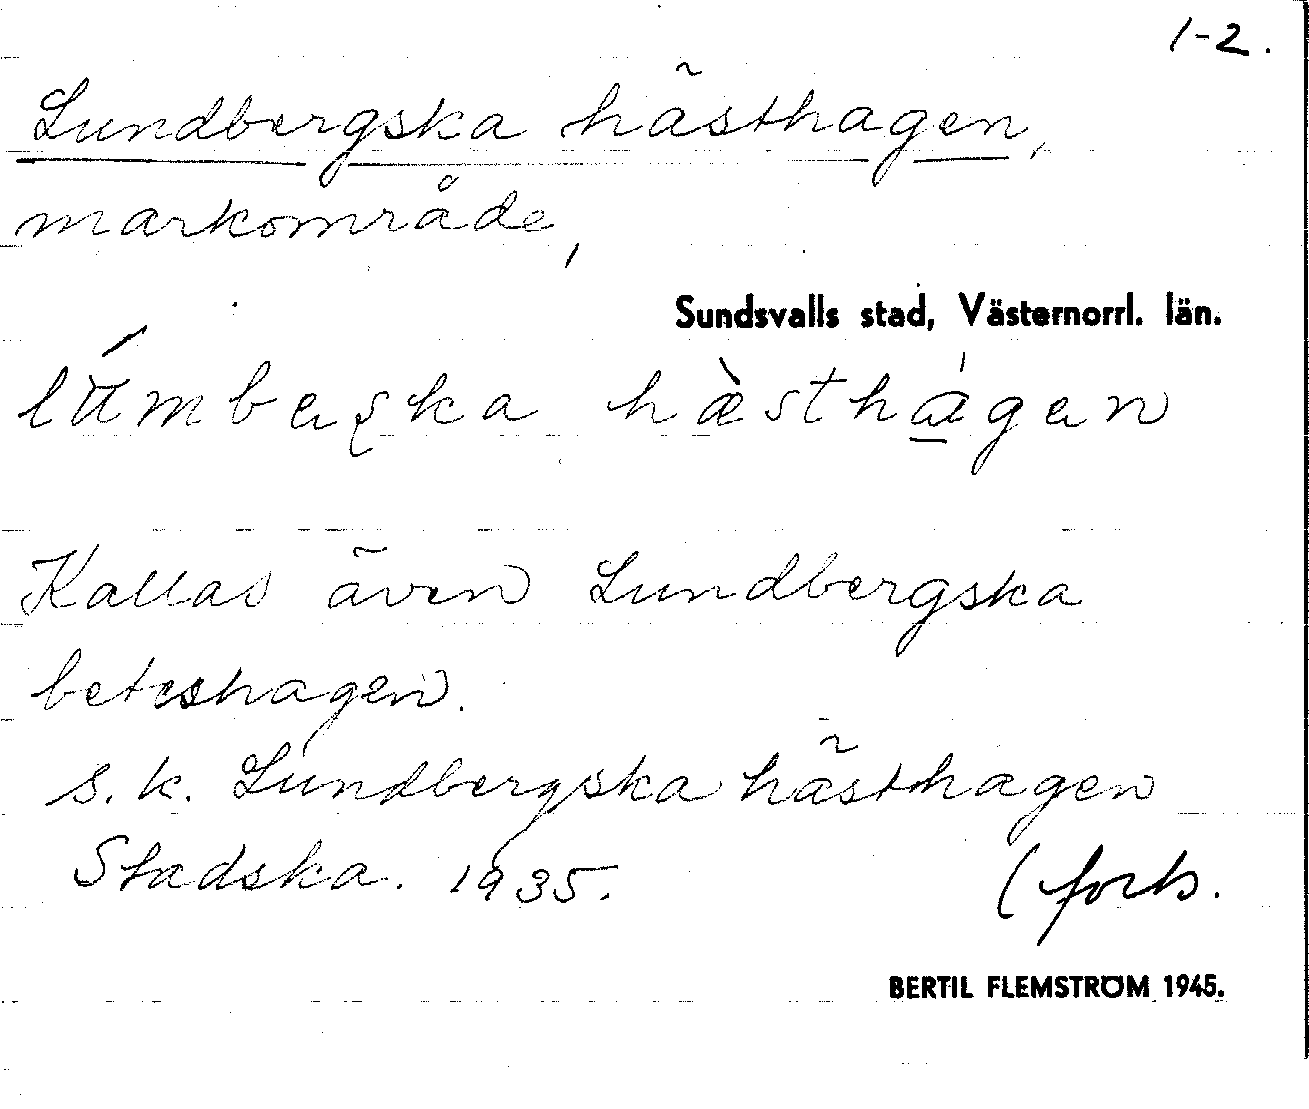 1-2.
Lundbergska hästhagen,
markområde,
Sundsvalls stad, Västernorrl. län.
hæ̀sthágen
Kallas även Lundbergska
beteshagen.
s.k. Lundbergska hästhagen
Stadska. 1935.
(forts.
BERTIL FLEMSTRÖM 1945.